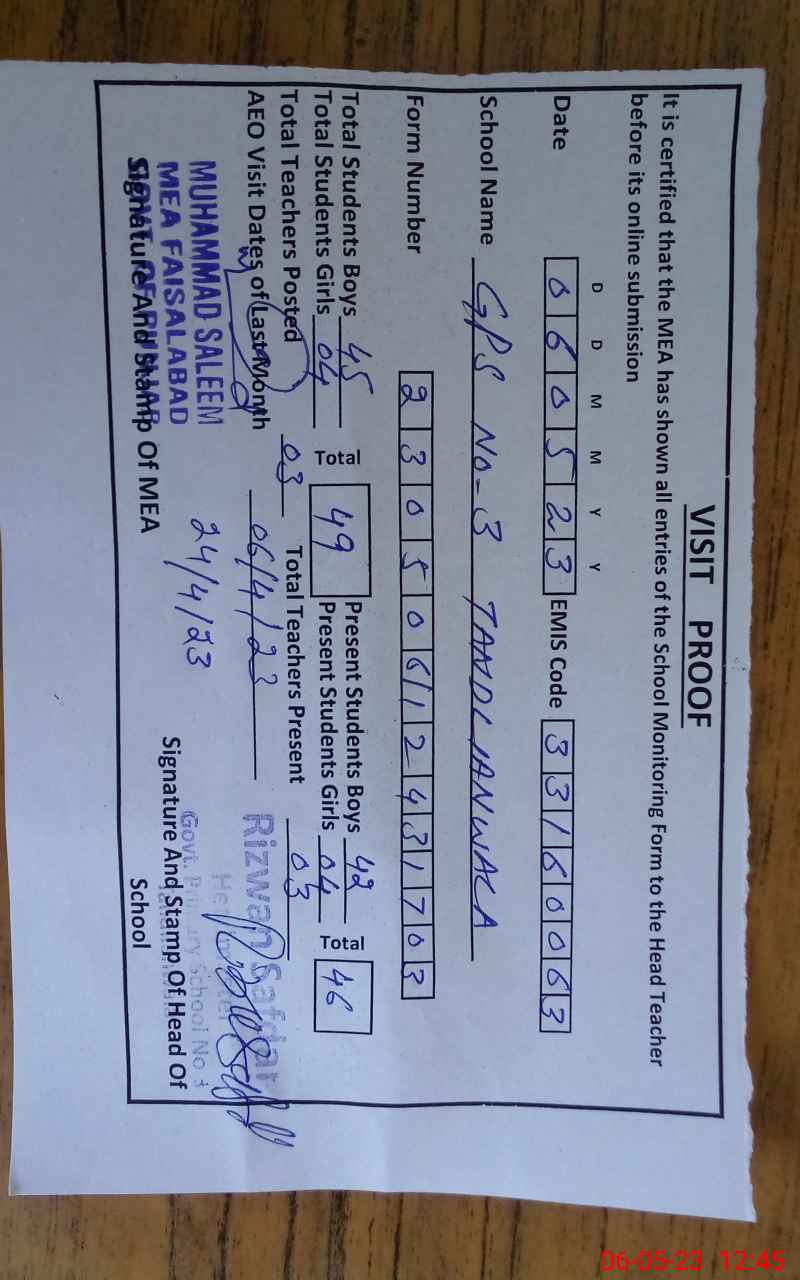 VISIT PROOF
It is certified that the MEA has shown all entries of the School Monitoring Form to the Head Teacher
before its online submission
D D M M Y Y
Date 060523 EMIS Code 33160063
School Name GPS No-3 TANDLIANWALA
Form Number 23050612431703
Total Students Boys 45 Present Students Boys 42
Total Students Girls 04 Total 49 Present Students Girls 04 Total 46
Total Teachers Posted 03 Total Teachers Present 03
AEO Visit Dates of Last Month 06/4/23
24/4/23
MUHAMMAD SALEEM
MEA FAISALABAD
Signature And Stamp Of MEA
Rizwan Safdar
Govt. Primary School No 3
Signature And Stamp Of Head Of
School
06-05-23 12:45